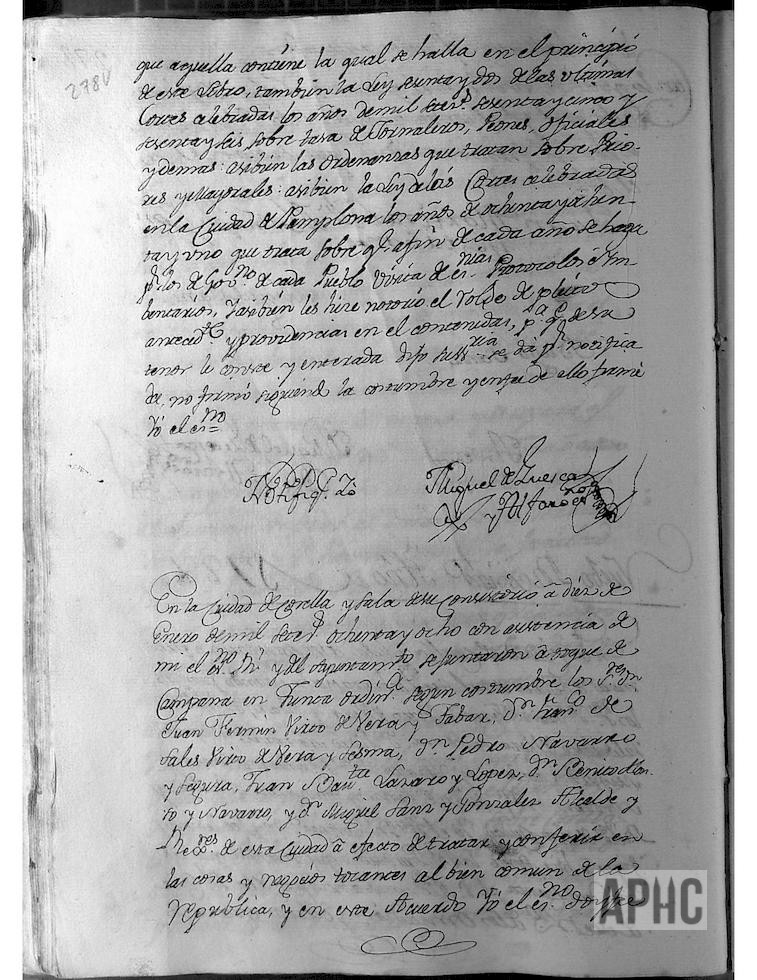 278v
que aquella contiene la qual se halla en el principio
de este Libro, tambien la Ley sesenta y dos de las ultimas
Cortes celebradas los años de mil setec.s sesenta y cinco y
sesenta y seis sobre tasa de Jornaleros, Peones, oficiales
y demas: asibien las ordenanzas que tratan sobre Prio-
res y Mayorales: asibien la Ley de las Cortes celebradas
en la Ciudad de Pamplona los años de ochenta y ochen-
ta y uno que trata sobre q.e a fin de cada año se haga
p.r los de Gov.no de cada Pueblo Visita de es.nias Protocolos é In-
bentarios, Tasibien les hize notorio el de pleito
anteced.te y providencias en el contenidas, p.a q.e de su
tenor le conste y enterada dijo su S.ria se dá p.r notifica
da, no firmó siguiend. la costumbre y en fee de ello firmé
Yó el es.no =
Notifiq.e 20
Miguel de Luesca
y Alfaro es.no
En la Ciudad de Corella y sala de su Consistorio â diez de
Enero de mil setec.s ochenta y ocho con asistencia de
mi el es.no R.l y del Ayuntam.to se juntaron â toque de
Campana en Junta ordin.a segun costumbre los S.res D.n
Juan Fermin Virto de Vera y Fabar, D.n Fran.co de
Sales Virto de Vera y Sesma, D.n Pedro Navarro
y Segura, Juan Bau.ta Lazaro y Lopez, D.n Benito
y Navarro, y D.n Miguel Sanz y Gonzalez Alcalde y
Rex.res de esta Ciudad â efecto de tratar y conferir en
las cosas y negocios tocantes al bien comun de la
Republica, y en este Acuerdo Yó el es.no doy fee
APHC